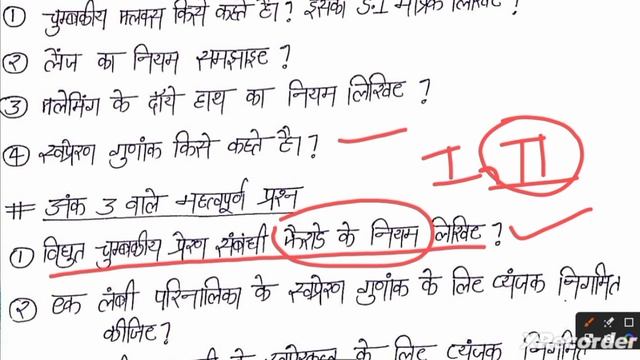 ① चुम्बकीय फ्लक्स किसे कहते है।? इसका S.I मात्रक लिखिए?
② लैंज का नियम समझाइए?
③ फ्लेमिंग के दाँये हाथ का नियम लिखिए?
④ स्वप्रेरण गुणांक किसे कहते है।?
I, II
# अंक 3 वाले महत्वपूर्ण प्रश्न
① विद्युत चुम्बकीय प्रेरण संबंधी फैराडे के नियम लिखिए?
② एक लंबी परिनालिका के स्वप्रेरण गुणांक के लिए व्यंजक निगमित
कीजिए?
के लिए व्यंजक निगमित